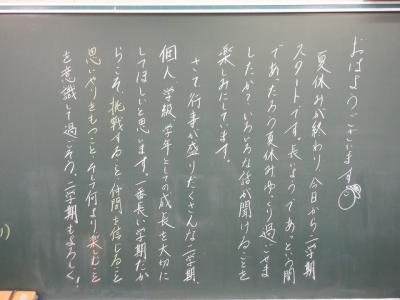 おはようございます
夏休みが終わり、今日から二学期
スタートです。長いようであっという間
であっただろう夏休み。ゆっくり過ごせま
したか?いろいろな話が聞けることを
楽しみにしています。
さて、行事が盛りだくさんな二学期、
個人、学級、学年としての成長を大切に
してほしいと思います。一番長い学期だか
らこそ、挑戦すること、仲間を信じること
思いやりをもつこと、そして何より楽しむこと
を意識して過ごそう。二学期もよろしく!